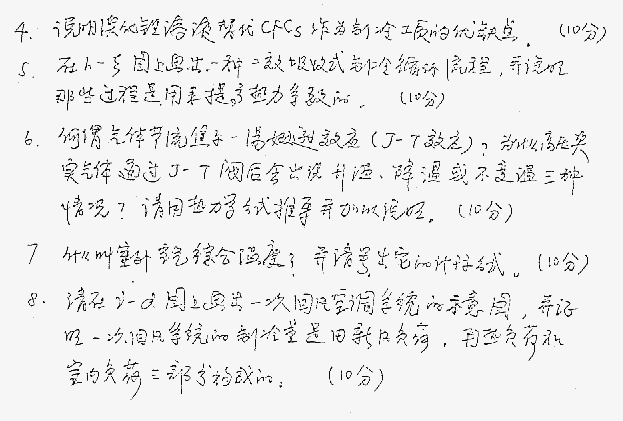 4. 说明溴化锂溶液替代CFCs作为制冷工质的优缺点。(10分)
5. 在h-ξ图上画出一种二效吸收式制冷循环流程,并说明
那些过程是用来提高热力学效的。(10分)
6. 何谓气体节流焦耳-汤姆逊效应(J-T效应)?为什么高压实
实气体通过J-T阀后会出现升温、降温或不变温三种
情况?请用热力学公式推导并加以说明。(10分)
7 什么叫室外空气综合温度?并请写出它的计算公式。(10分)
8. 请在i-d图上画出一次回风空调系统的示意图,并证
明一次回风系统的制冷量是由新风负荷,再热负荷和
室内负荷三部分构成的。(10分)